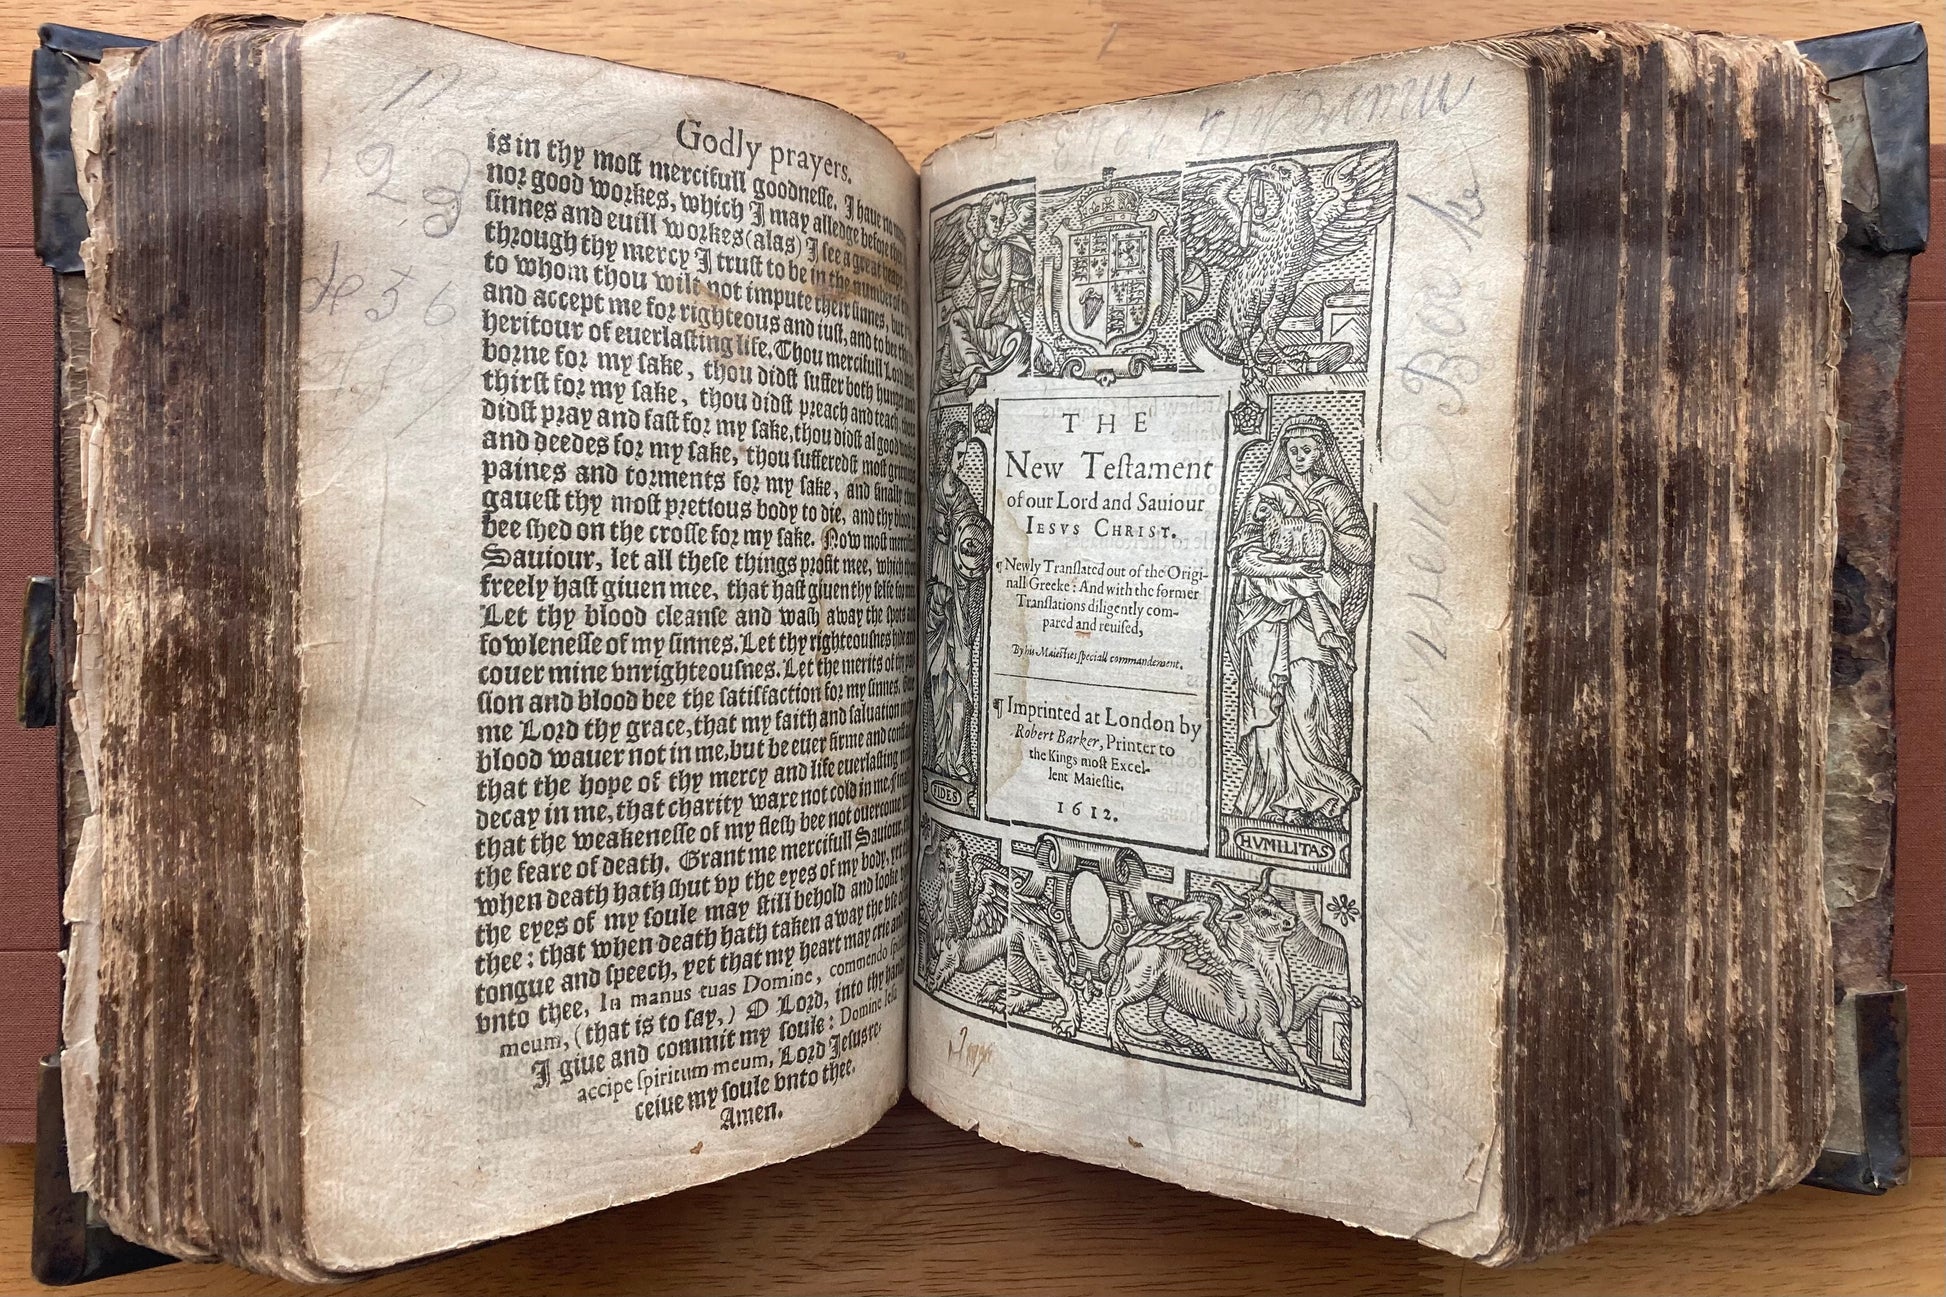 Godly prayers.
is in thy most mercifull goodnesse. I haue
nor good workes, which I may alledge before
sinnes and euill workes (alas) I see a great
through thy mercy I trust to be in the number of
to whom thou wilt not impute their sinnes, but
and accept me for righteous and iust, and to be
heritour of euerlasting life. Thou mercifull Lord
borne for my sake, thou didst suffer both hunger and
thirst for my sake, thou didst preach and teach,
didst pray and fast for my sake, thou didst al good
and deedes for my sake, thou sufferedst most
paines and torments for my sake, and finally
gauest thy most pretious body to die, and thy blood
bee shed on the crosse for my sake. Now most
Sauiour, let all these things profit mee, which
freely hast giuen mee, that hast giuen thy selfe for
Let thy blood cleanse and wash away the spots and
fowlenesse of my sinnes. Let thy righteousnes hide and
couer mine vnrighteousnes. Let the merits of thy
sion and blood bee the satisfaction for my sinnes.
me Lord thy grace, that my faith and saluation
blood wauer not in me, but be euer firme and
that the hope of thy mercy and life euerlasting
decay in me, that charity waxe not cold in me,
that the weakenesse of my flesh bee not ouercome
the feare of death. Grant me mercifull Sauiour,
when death hath shut vp the eyes of my body, yet
the eyes of my soule may still behold and looke
thee: that when death hath taken away the vse of
tongue and speech, yet that my heart may crie and
vnto thee, In manus tuas Domine, commendo
meum, (that is to say,) O Lord, into thy
I giue and commit my soule: Domine Iesu
accipe spiritum meum, Lord Jesus re-
ceiue my soule vnto thee.
Amen.
1 2 3
5 6
THE
New Testament
of our Lord and Sauiour
IESVS CHRIST.
¶ Newly Translated out of the Origi-
nall Greeke: And with the former
Translations diligently com-
pared and reuised,
By his Maiesties speciall commandement.
¶ Imprinted at London by
Robert Barker, Printer to
the Kings most Excel-
lent Maiestie.
1612.
FIDES
HVMILITAS